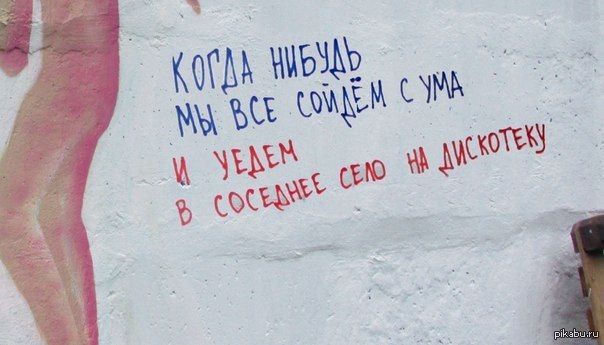 КОГДА НИБУДЬ
МЫ ВСЕ СОЙДЁМ С УМА
И УЕДЕМ
В СОСЕДНЕЕ СЕЛО НА ДИСКОТЕКУ
pikabu.ru